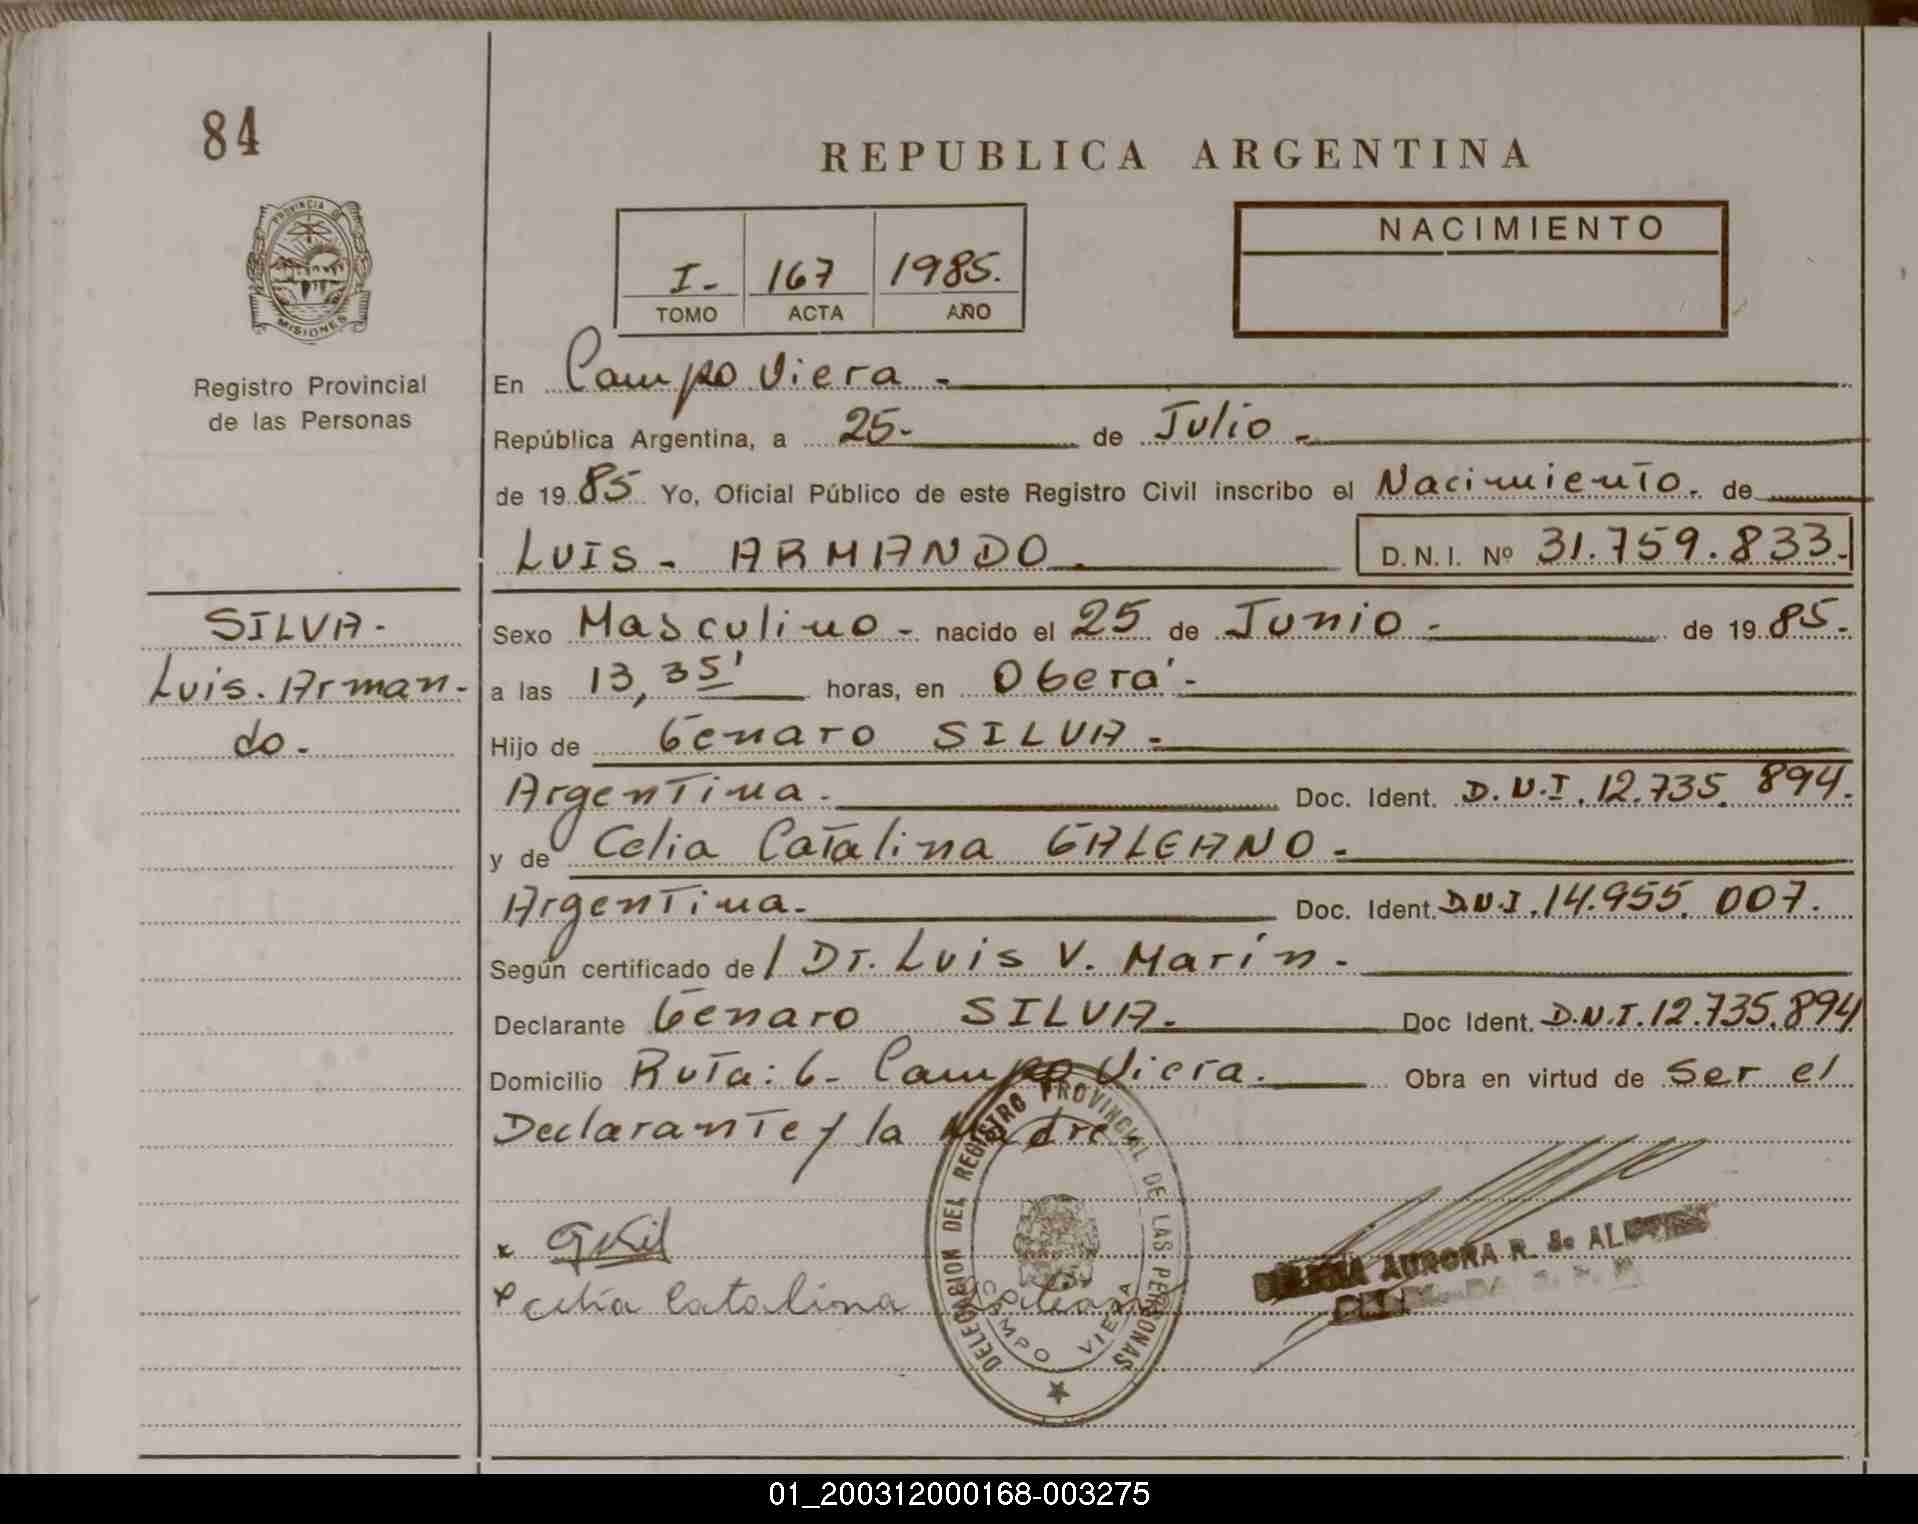 84
REPUBLICA ARGENTINA
PROVINCIA DE
MISIONES
Registro Provincial
de las Personas
I- 167 1985.
TOMO ACTA AÑO
NACIMIENTO
En Campo Viera -
República Argentina, a 25- de Julio -
de 1985 Yo, Oficial Público de este Registro Civil inscribo el Nacimiento. de
LUIS - ARMANDO D.N.I. Nº 31.759.833-
SILVA-
Luis. Arman-
do-
Sexo Masculino - nacido el 25 de Junio - de 1985-
a las 13,35' horas, en Oberá -
Hijo de Genaro SILVA -
Argentina. Doc. Ident. D.N.I. 12.735.894.
y de Celia Catalina GALEANO -
Argentina. Doc. Ident. D.N.I. 14.955.007.
Según certificado de / Dr. Luis V. Marín -
Declarante Genaro SILVA. Doc Ident. D.N.I. 12.735.894
Domicilio Ruta: 6- Campo Viera. Obra en virtud de Ser el
Declarante y la Madre.
Celia Catalina
DELEGACION DEL REGISTRO PROVINCIAL DE LAS PERSONAS
CAMPO VIERA
AURORA R. de
01_200312000168-003275